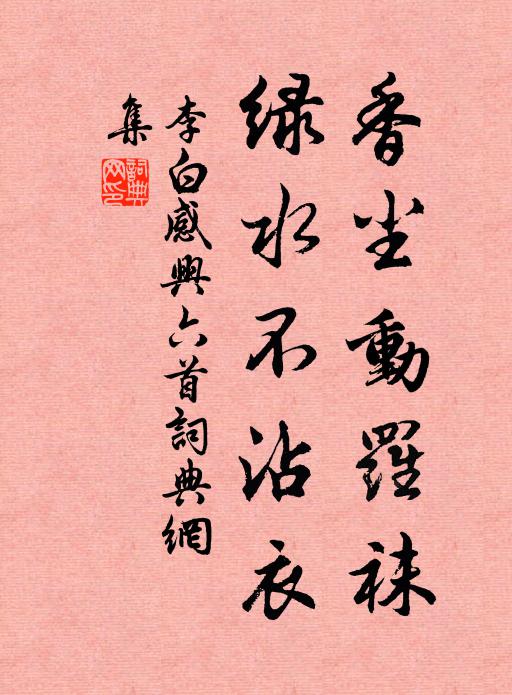 香尘動羅袜
緑水不沾衣
李白感興六首詞典網
集
詞典網印